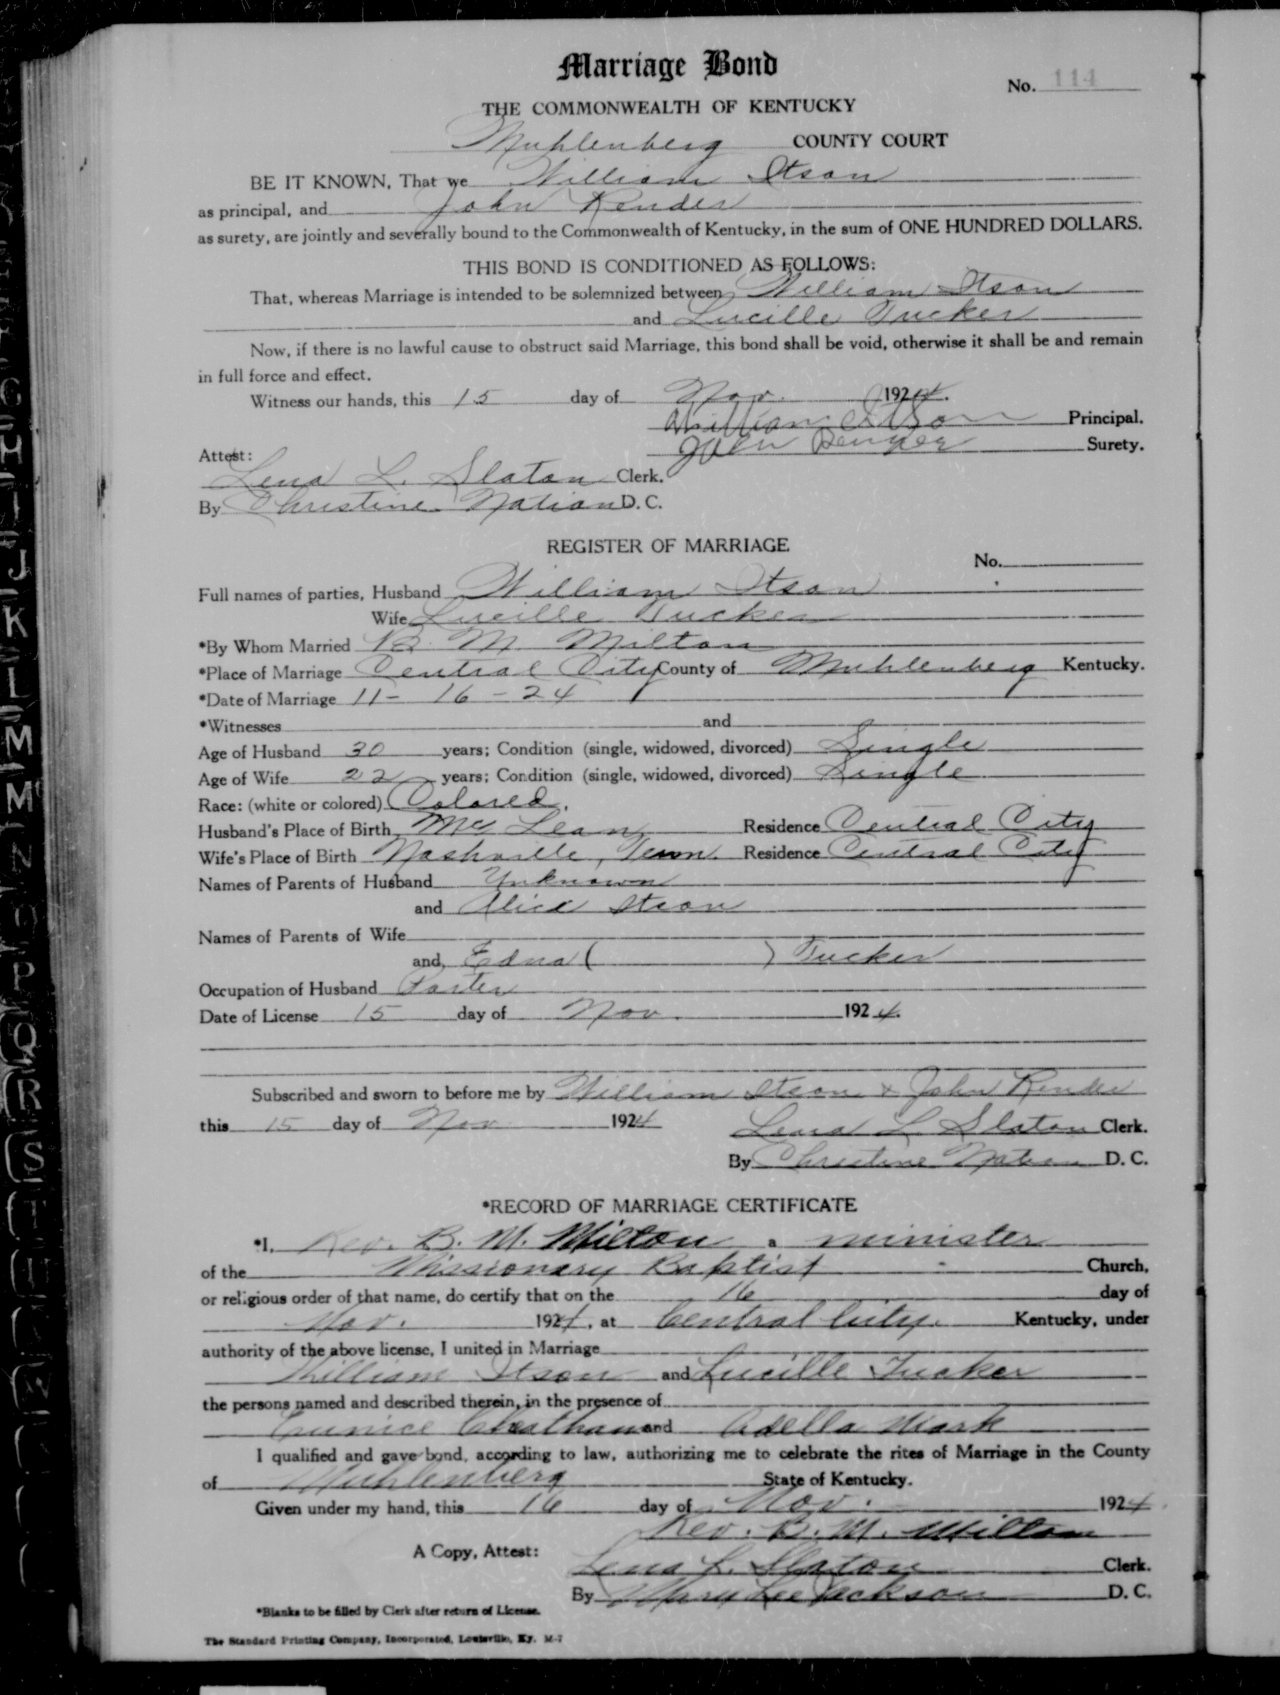 Marriage Bond
No. 114
THE COMMONWEALTH OF KENTUCKY
Muhlenberg COUNTY COURT
BE IT KNOWN, That we William Itson
as principal, and John Render
as surety, are jointly and severally bound to the Commonwealth of Kentucky, in the sum of ONE HUNDRED DOLLARS.
THIS BOND IS CONDITIONED AS FOLLOWS:
That, whereas Marriage is intended to be solemnized between William Itson
and Lucille Tucker
Now, if there is no lawful cause to obstruct said Marriage, this bond shall be void, otherwise it shall be and remain
in full force and effect.
Witness our hands, this 15 day of Nov. 1924.
William Itson Principal.
John Render Surety.
Attest:
Lena L. Slaton Clerk.
By Christine Nation D. C.
REGISTER OF MARRIAGE
No.
Full names of parties, Husband William Itson
Wife Lucille Tucker
*By Whom Married B. M. Milton
*Place of Marriage Central City County of Muhlenberg Kentucky.
*Date of Marriage 11- 16 - 24
*Witnesses and
Age of Husband 30 years; Condition (single, widowed, divorced) Single
Age of Wife 22 years; Condition (single, widowed, divorced) Single
Race: (white or colored) Colored.
Husband's Place of Birth Mc Lean Residence Central City
Wife's Place of Birth Nashville, Tenn. Residence Central City
Names of Parents of Husband Unknown
and Alice Itson
Names of Parents of Wife
and Edna ( ) Tucker
Occupation of Husband Porter
Date of License 15 day of Nov. 1924.
Subscribed and sworn to before me by William Itson & John Render
this 15 day of Nov. 1924
Lena L. Slaton Clerk.
By Christine Nation D. C.
*RECORD OF MARRIAGE CERTIFICATE
*I, Rev. B. M. Milton a minister
of the Missionary Baptist Church,
or religious order of that name, do certify that on the 16 day of
Nov. 1924, at Central City. Kentucky, under
authority of the above license, I united in Marriage
William Itson and Lucille Tucker
the persons named and described therein, in the presence of
Eunice Cheatham and Adella Mark
I qualified and gave bond, according to law, authorizing me to celebrate the rites of Marriage in the County
of Muhlenberg State of Kentucky.
Given under my hand, this 16 day of Nov. 1924.
Rev. B. M. Milton
A Copy, Attest:
Lena L. Slaton Clerk.
By Mary Lee Jackson D. C.
*Blanks to be filled by Clerk after return of License.
The Standard Printing Company, Incorporated, Louisville, Ky. M-7